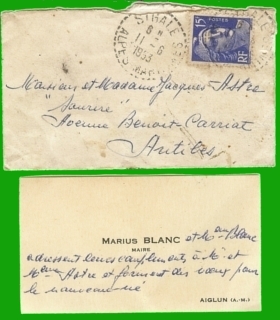 STRALE
6 H
11 - 6
1953
ALPES
15F
POSTES
RF
Monsieur et Madame Jacques Astre
"Sourire"
Avenue Benoit Carriat
Antibes
MARIUS BLANC et Mme Blanc
MAIRE
adressent leurs compliments à M. et
Mme Astre et forment des vœux pour
le nouveau-né
AIGLUN (A.-M.)